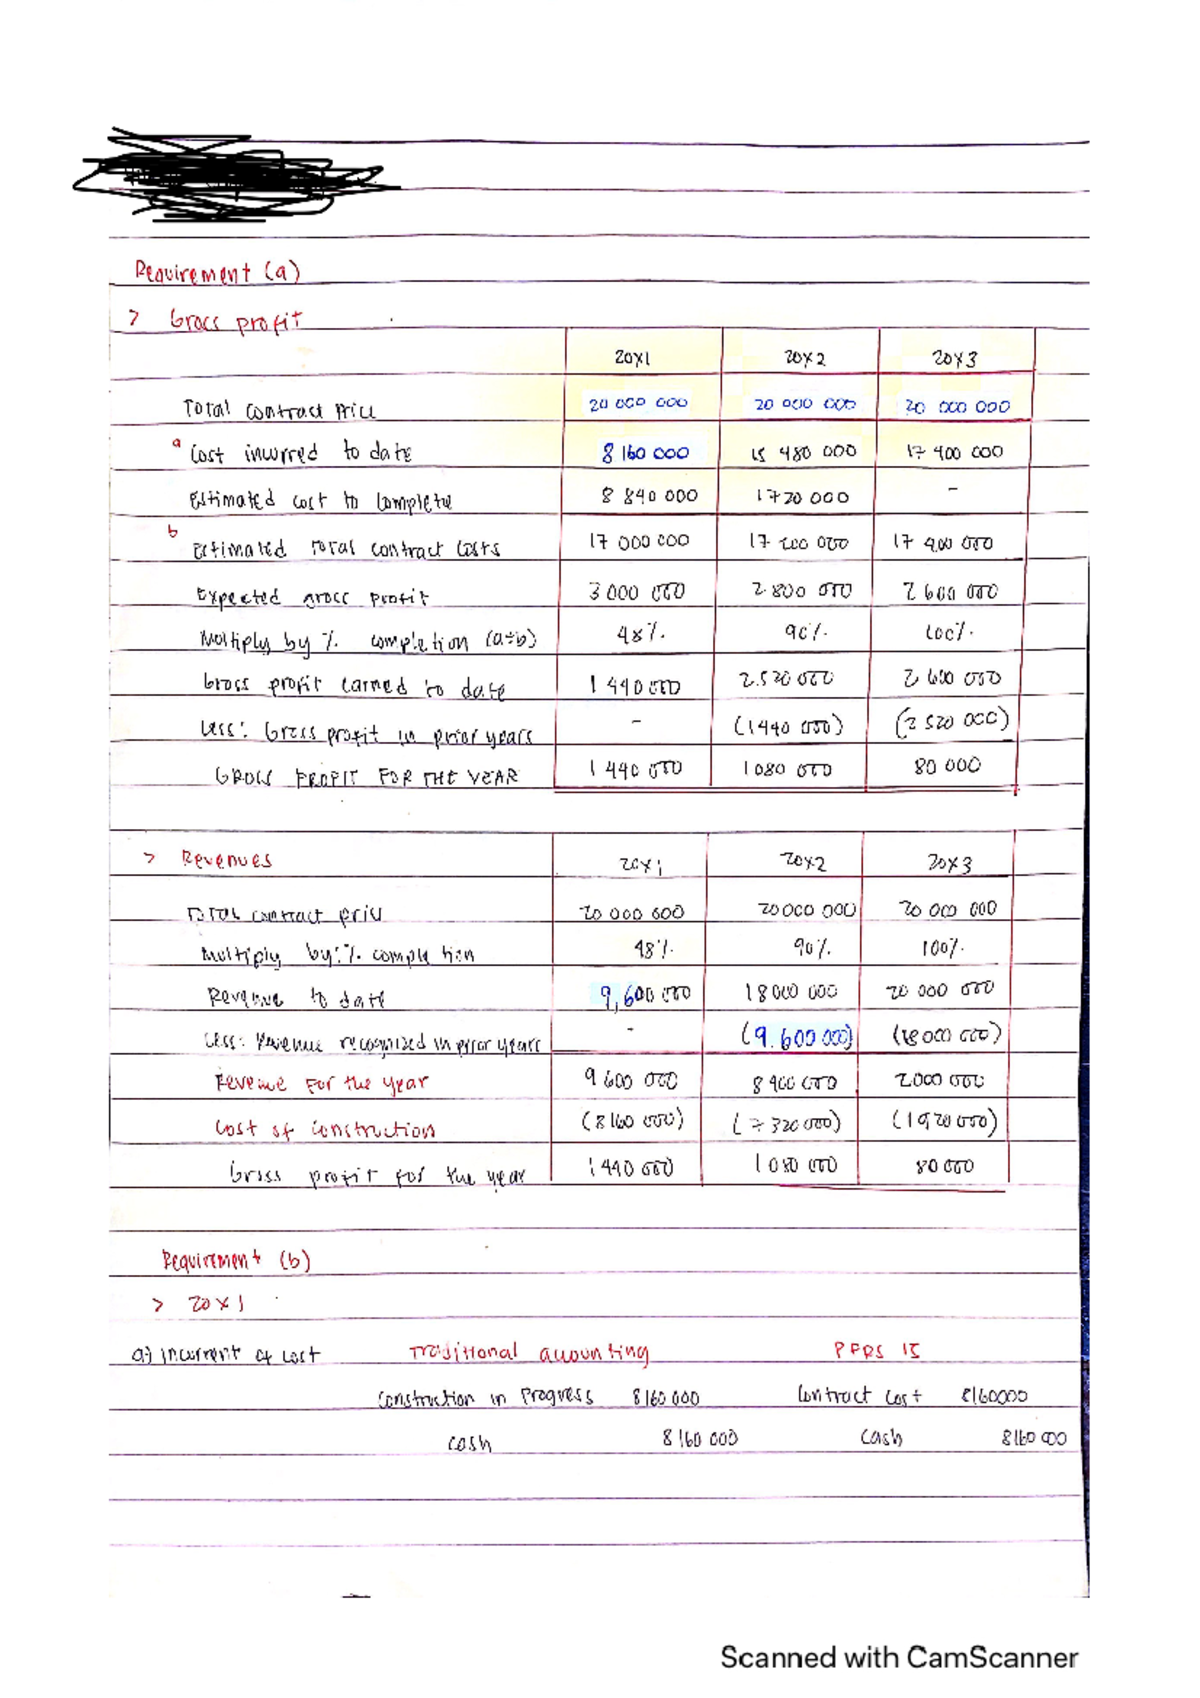 Requirement (a)
> Gross profit
20x1 20x2 20x3
Total contract price 20 000 000 20 000 000 20 000 000
a Cost incurred to date 8 160 000 15 480 000 17 400 000
Estimated cost to complete 8 840 000 1720 000 -
b Estimated total contract costs 17 000 000 17 200 000 17 400 000
Expected gross profit 3 000 000 2.800 000 2 600 000
Multiply by % completion (a÷b) 48% 90% 100%
Gross profit earned to date 1 440 000 2.520 000 2 600 000
Less: Gross profit in prior years - (1440 000) (2 520 000)
GROSS PROFIT FOR THE YEAR 1 440 000 1080 000 80 000
> Revenues 20x1 20x2 20x3
Total contract price 20 000 000 20000 000 20 000 000
Multiply by: % completion 48% 90% 100%
Revenue to date 9,600 000 18000 000 20 000 000
Less: Revenue recognized in prior years - (9.600 000) (18000 000)
Revenue for the year 9 600 000 8 400 000 2000 000
Cost of construction (8160 000) (7 320 000) (1920 000)
Gross profit for the year 1 440 000 1 080 000 80 000
Requirement (b)
> 20x1
a) Incurrent of cost Traditional accounting PFRS 15
Construction in Progress 8160 000 Contract cost 8160000
cash 8160 000 Cash 8160 000
Scanned with CamScanner